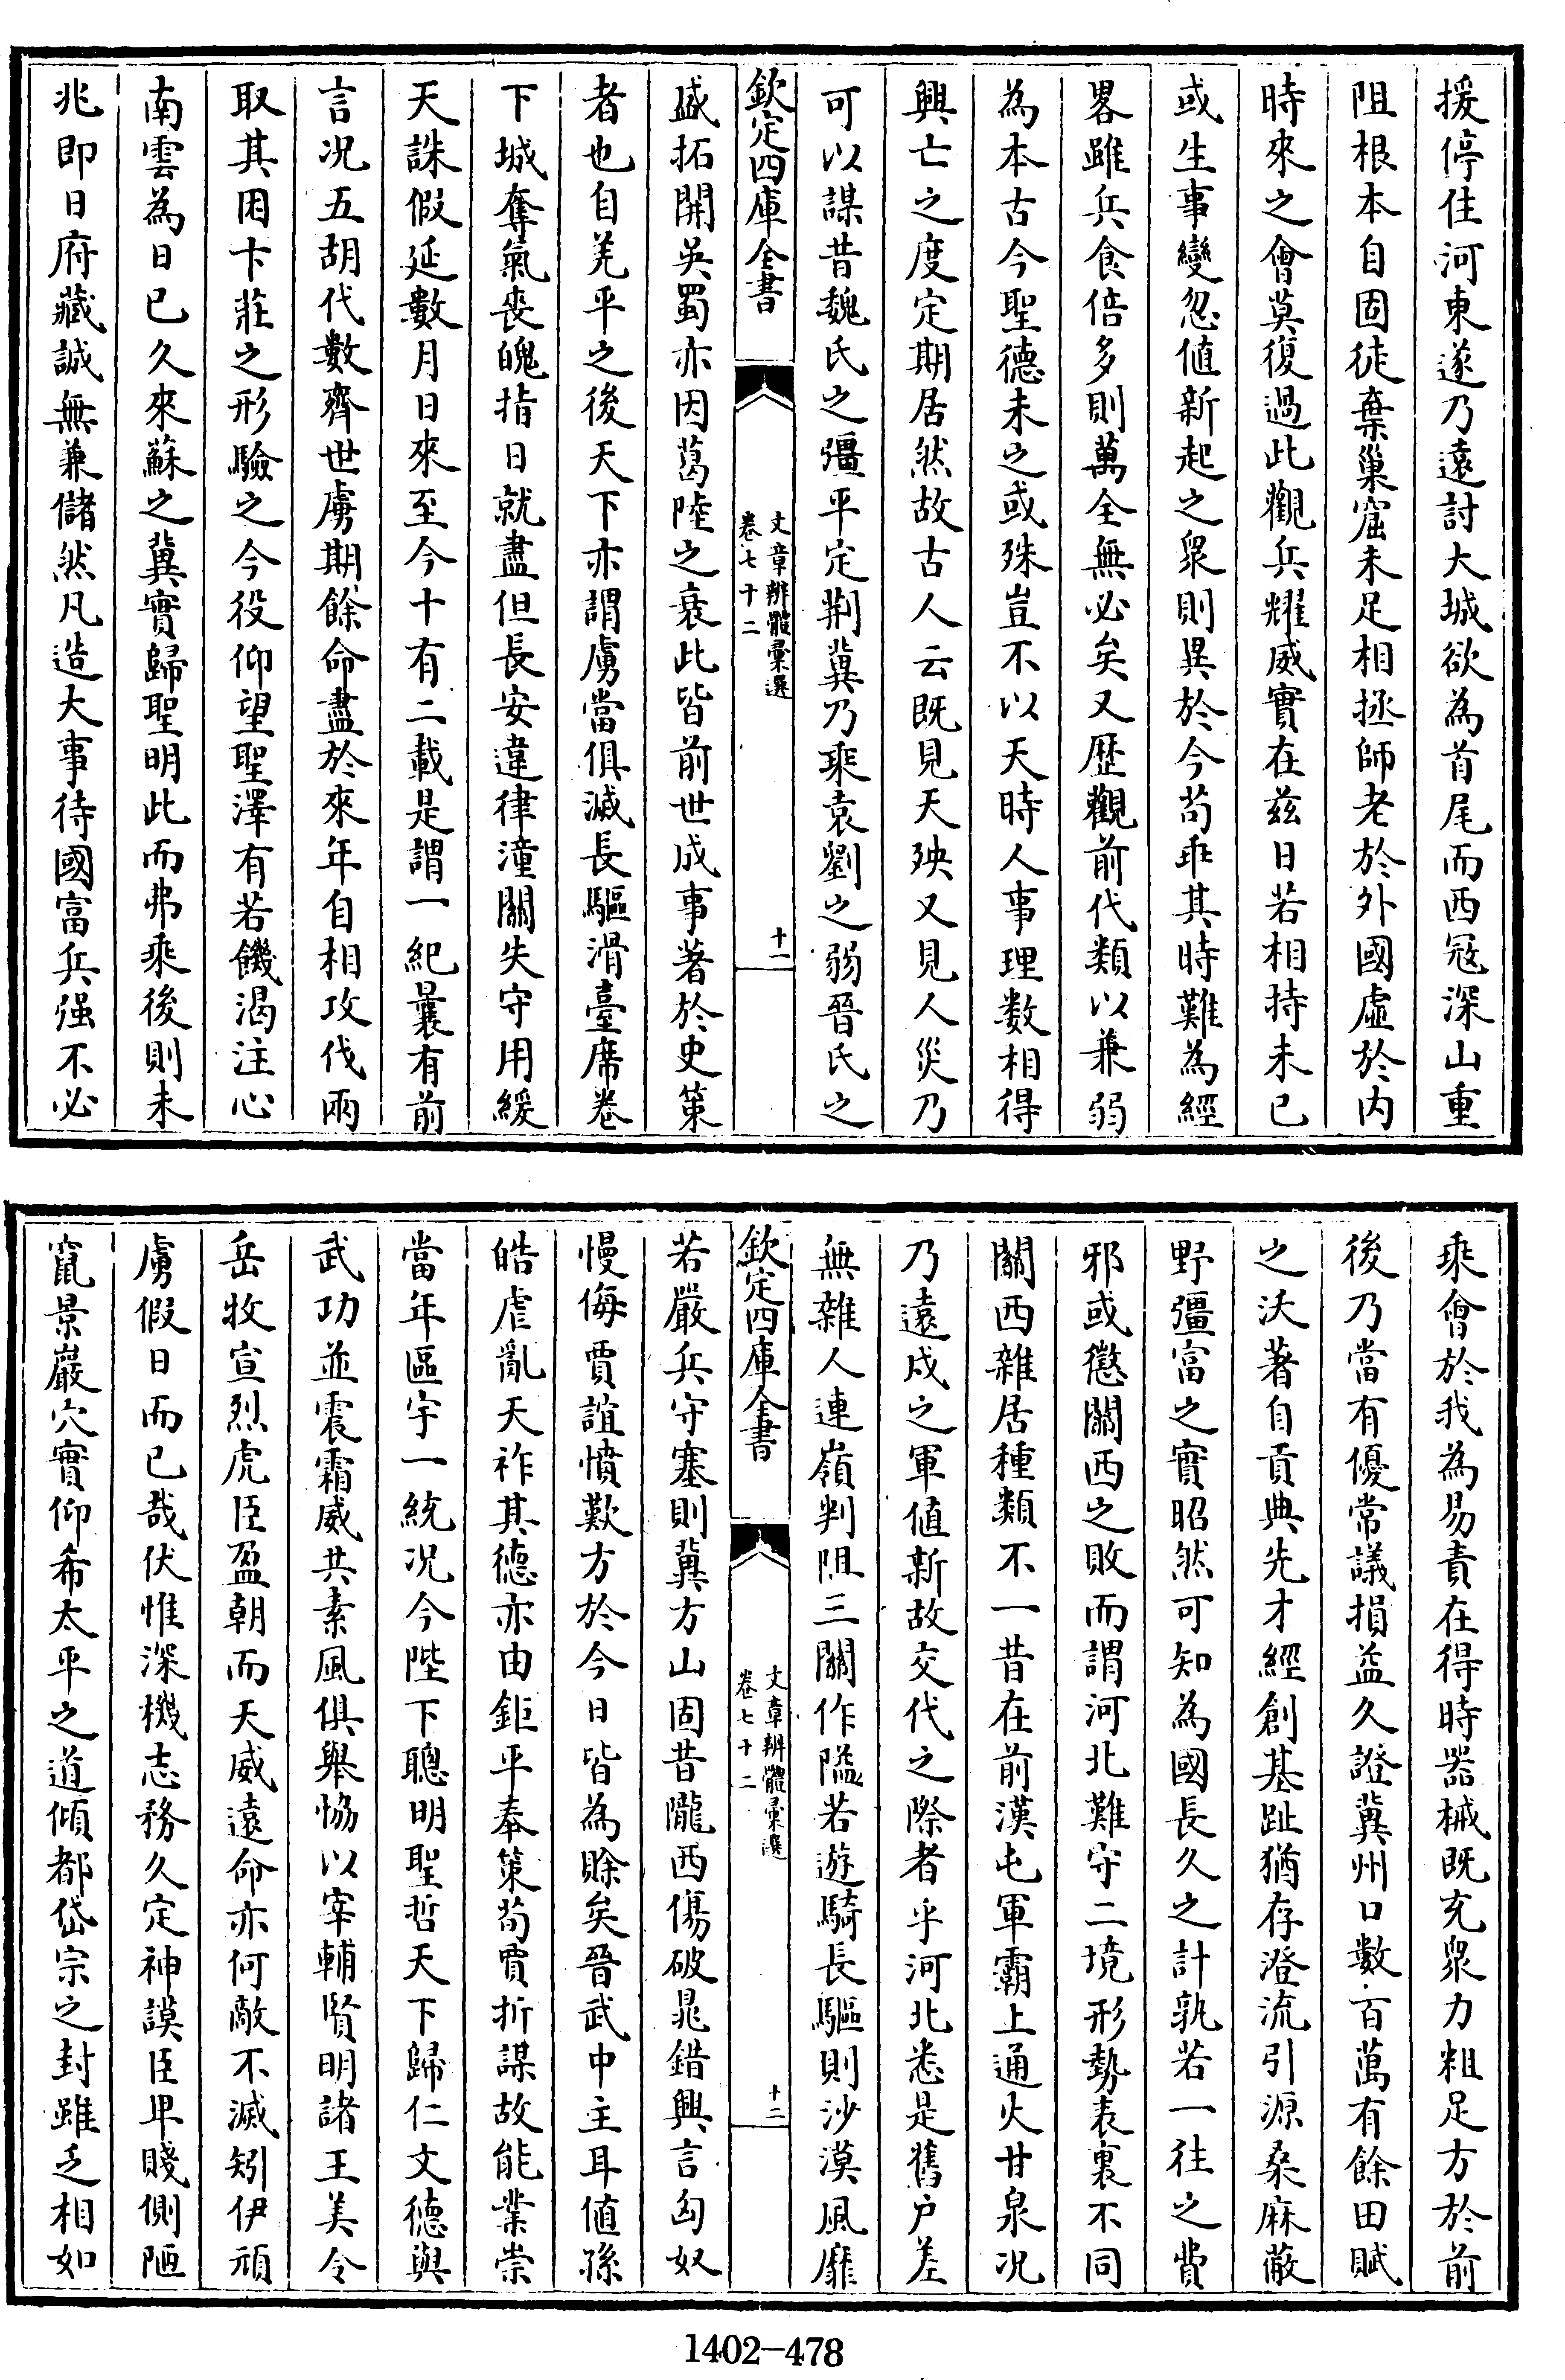 援停住河東遂乃遠討大城欲為首尾而西冦深山重
阻根本自固徒棄巢窟未足相拯師老於外國虛於内
時來之會莫復過此觀兵耀威實在兹日若相持未已
或生事變忽值新起之衆則異於今苟乖其時難為經
畧雖兵食倍多則萬全無必矣又歴觀前代類以兼弱
為本古今聖德未之或殊豈不以天時人事理数相得
興亡之度定期居然故古人云既見天殃又見人災乃
可以謀昔魏氏之彊平定荆冀乃乘袁劉之弱晉氏之
欽定四庫全書
文章辨體彚選
卷七十二
十一
盛拓開吳蜀亦因葛陸之衰此皆前世成事著於史策
者也自羌平之後天下亦謂虜當俱滅長驅滑臺席卷
下城奪氣喪魄指日就盡但長安違律潼關失守用緩
天誅假延數月日來至今十有二載是謂一紀曩有前
言况五胡代數齊世虜期餘命盡於來年自相攻伐兩
取其困卞莊之形驗之今役仰望聖澤有若饑渴注心
南雲為日已久來蘇之冀實歸聖明此而弗乘後則未
兆即日府藏誠無兼儲然凡造大事待國富兵强不必
乘會於我為易責在得時器械既充衆力粗足方於前
後乃當有優常議損益久證冀州口數百萬有餘田賦
之沃著自貢典先才經創基趾猶存澄流引源桑麻蔽
野彊富之實昭然可知為國長久之計孰若一往之費
邪或懲關西之敗而謂河北難守二境形勢表裏不同
關西雜居種類不一昔在前漢屯軍霸上通火甘泉况
乃遠戍之軍值新故交代之際者乎河北悉是舊户差
無雜人連嶺判阻三關作隘若遊騎長驅則沙漠風靡
欽定四庫全書
文章辨體彚選
卷七十二
十二
若嚴兵守塞則冀方山固昔隴西傷破晁錯興言匈奴
慢侮賈誼憤歎方於今日皆為賒矣晉武中主耳值孫
皓虐亂天祚其德亦由鉅平奉策荀賈折謀故能業崇
當年區宇一統况今陛下聰明聖哲天下歸仁文德與
武功並震霜威共素風俱舉恊以宰輔賢明諸王美令
岳牧宣烈虎臣盈朝而天威遠命亦何敵不滅矧伊頑
虜假日而已哉伏惟深機志務久定神謨臣卑賤側陋
竄景巖穴實仰希太平之道傾都岱宗之封雖乏相如
1402-478